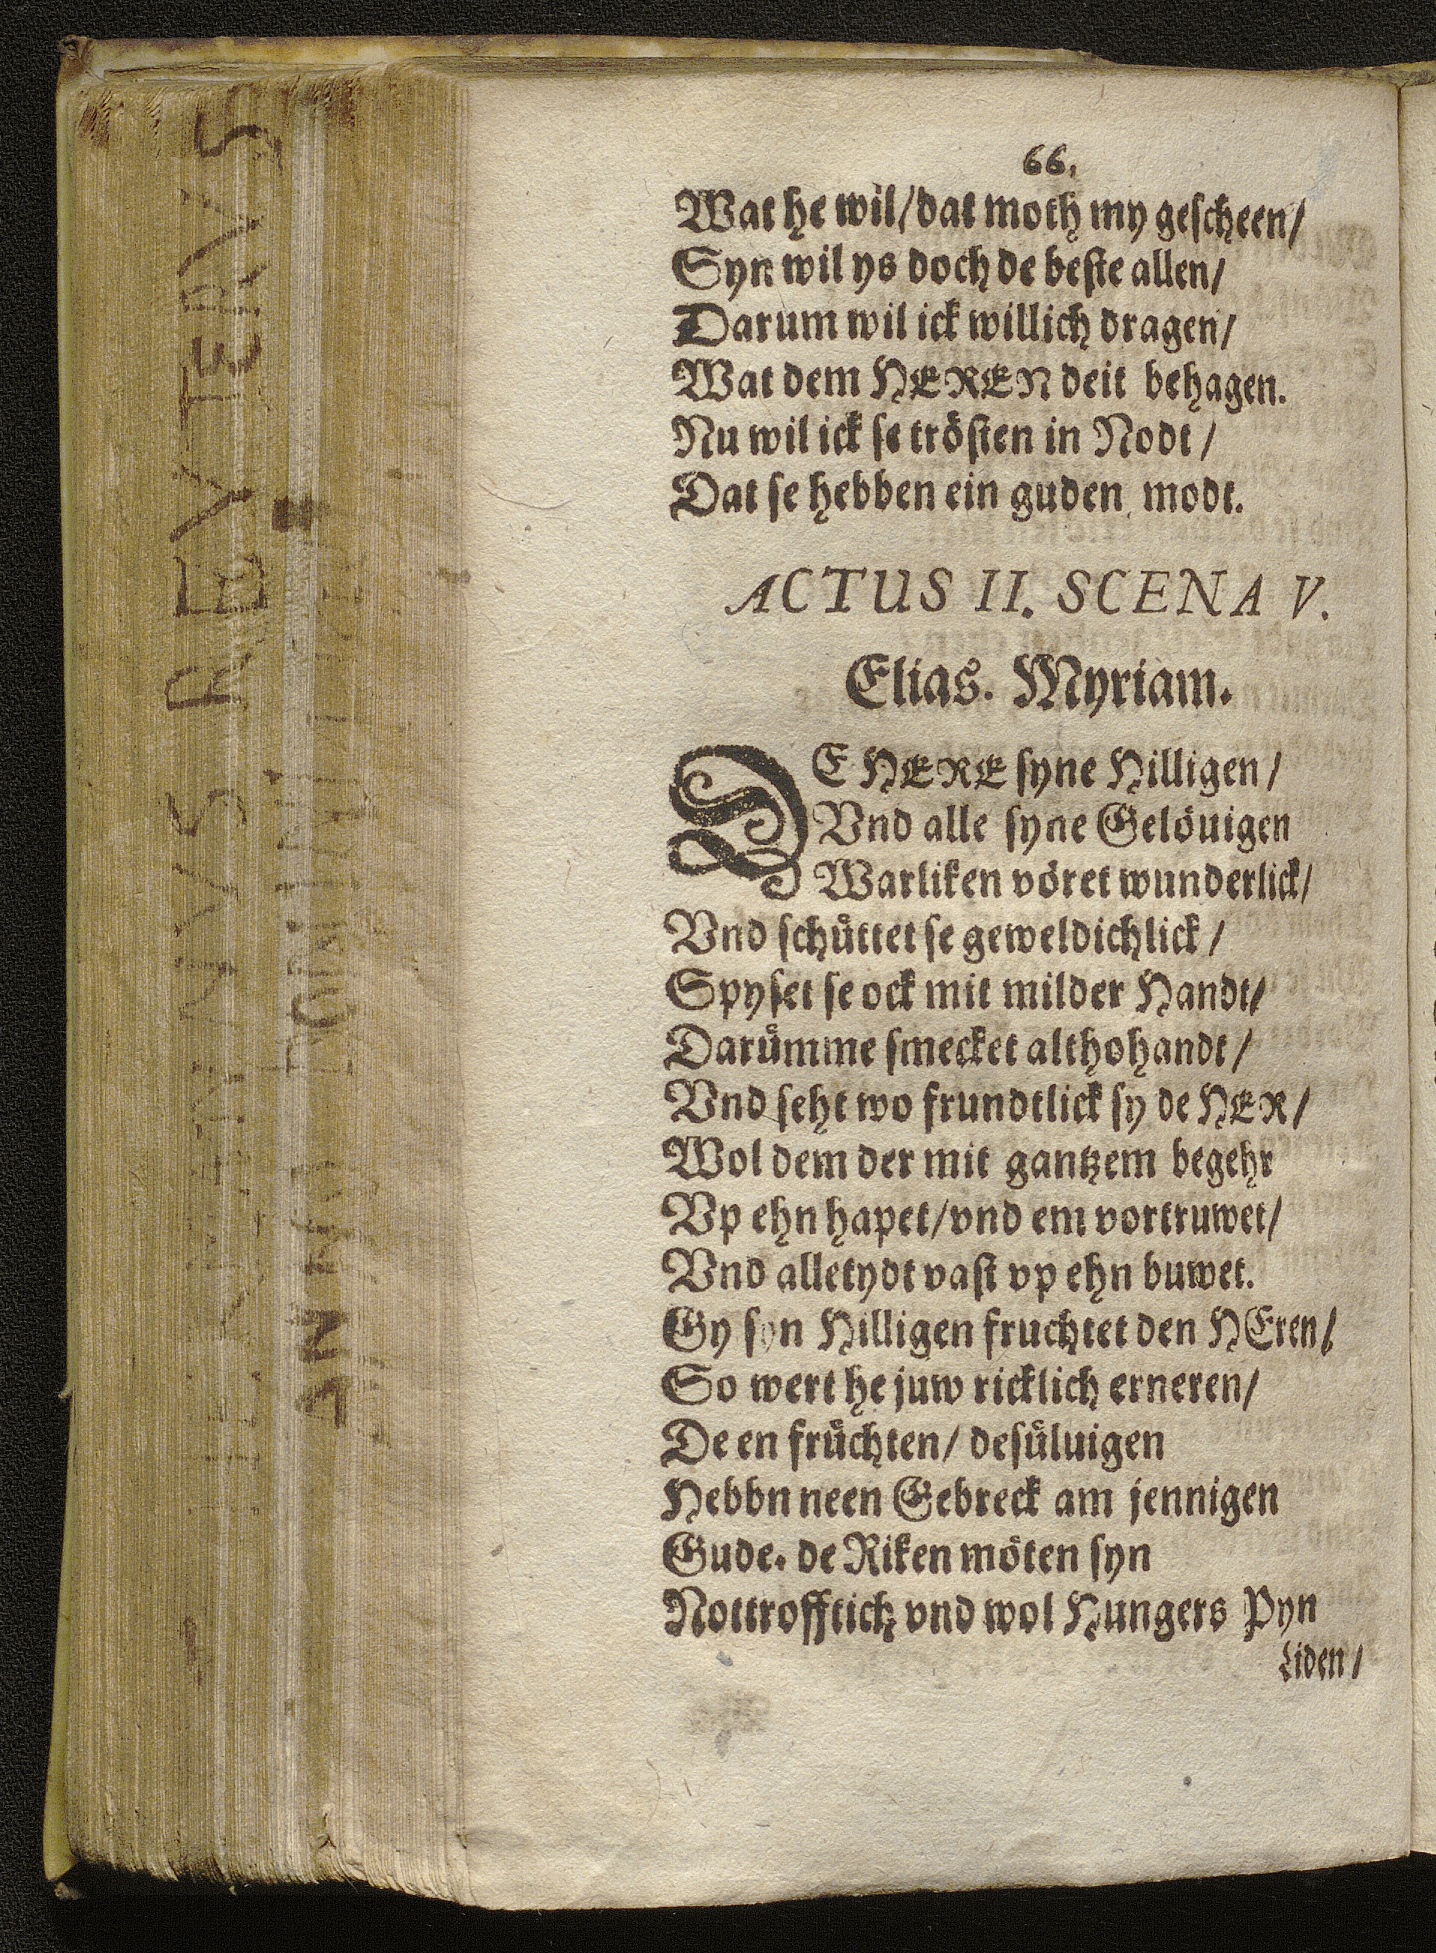 66.
Wat he wil/dat moth my gescheen/
Syn wil ys doch de beste allen/
Darum wil ick willich dragen/
Wat dem HEREN deit behagen.
Nu wil ick se trösten in Nodt/
Dat se hebben ein guden modt.
ACTUS II. SCENA V.
Elias. Myriam.
DE HERE syne Hilligen/
Vnd alle syne Gelöuigen
Warliken vöret wunderlick/
Vnd schüttet se geweldichlick/
Spyset se ock mit milder Handt/
Darümme smecket althohandt/
Vnd seht wo frundtlick sy de HER/
Wol dem der mit gantzem begehr
Vp ehn hapet/vnd em vortruwet/
Vnd alletydt vast vp ehn buwet.
Gy syn Hilligen fruchtet den HEren/
So wert he juw ricklich erneren/
De en früchten/ desüluigen
Hebbn neen Gebreck am jennigen
Gude. de Riken möten syn
Nottrofftich vnd wol Hungers Pyn
Liden/
REVTERVS
ANNO DOMINI